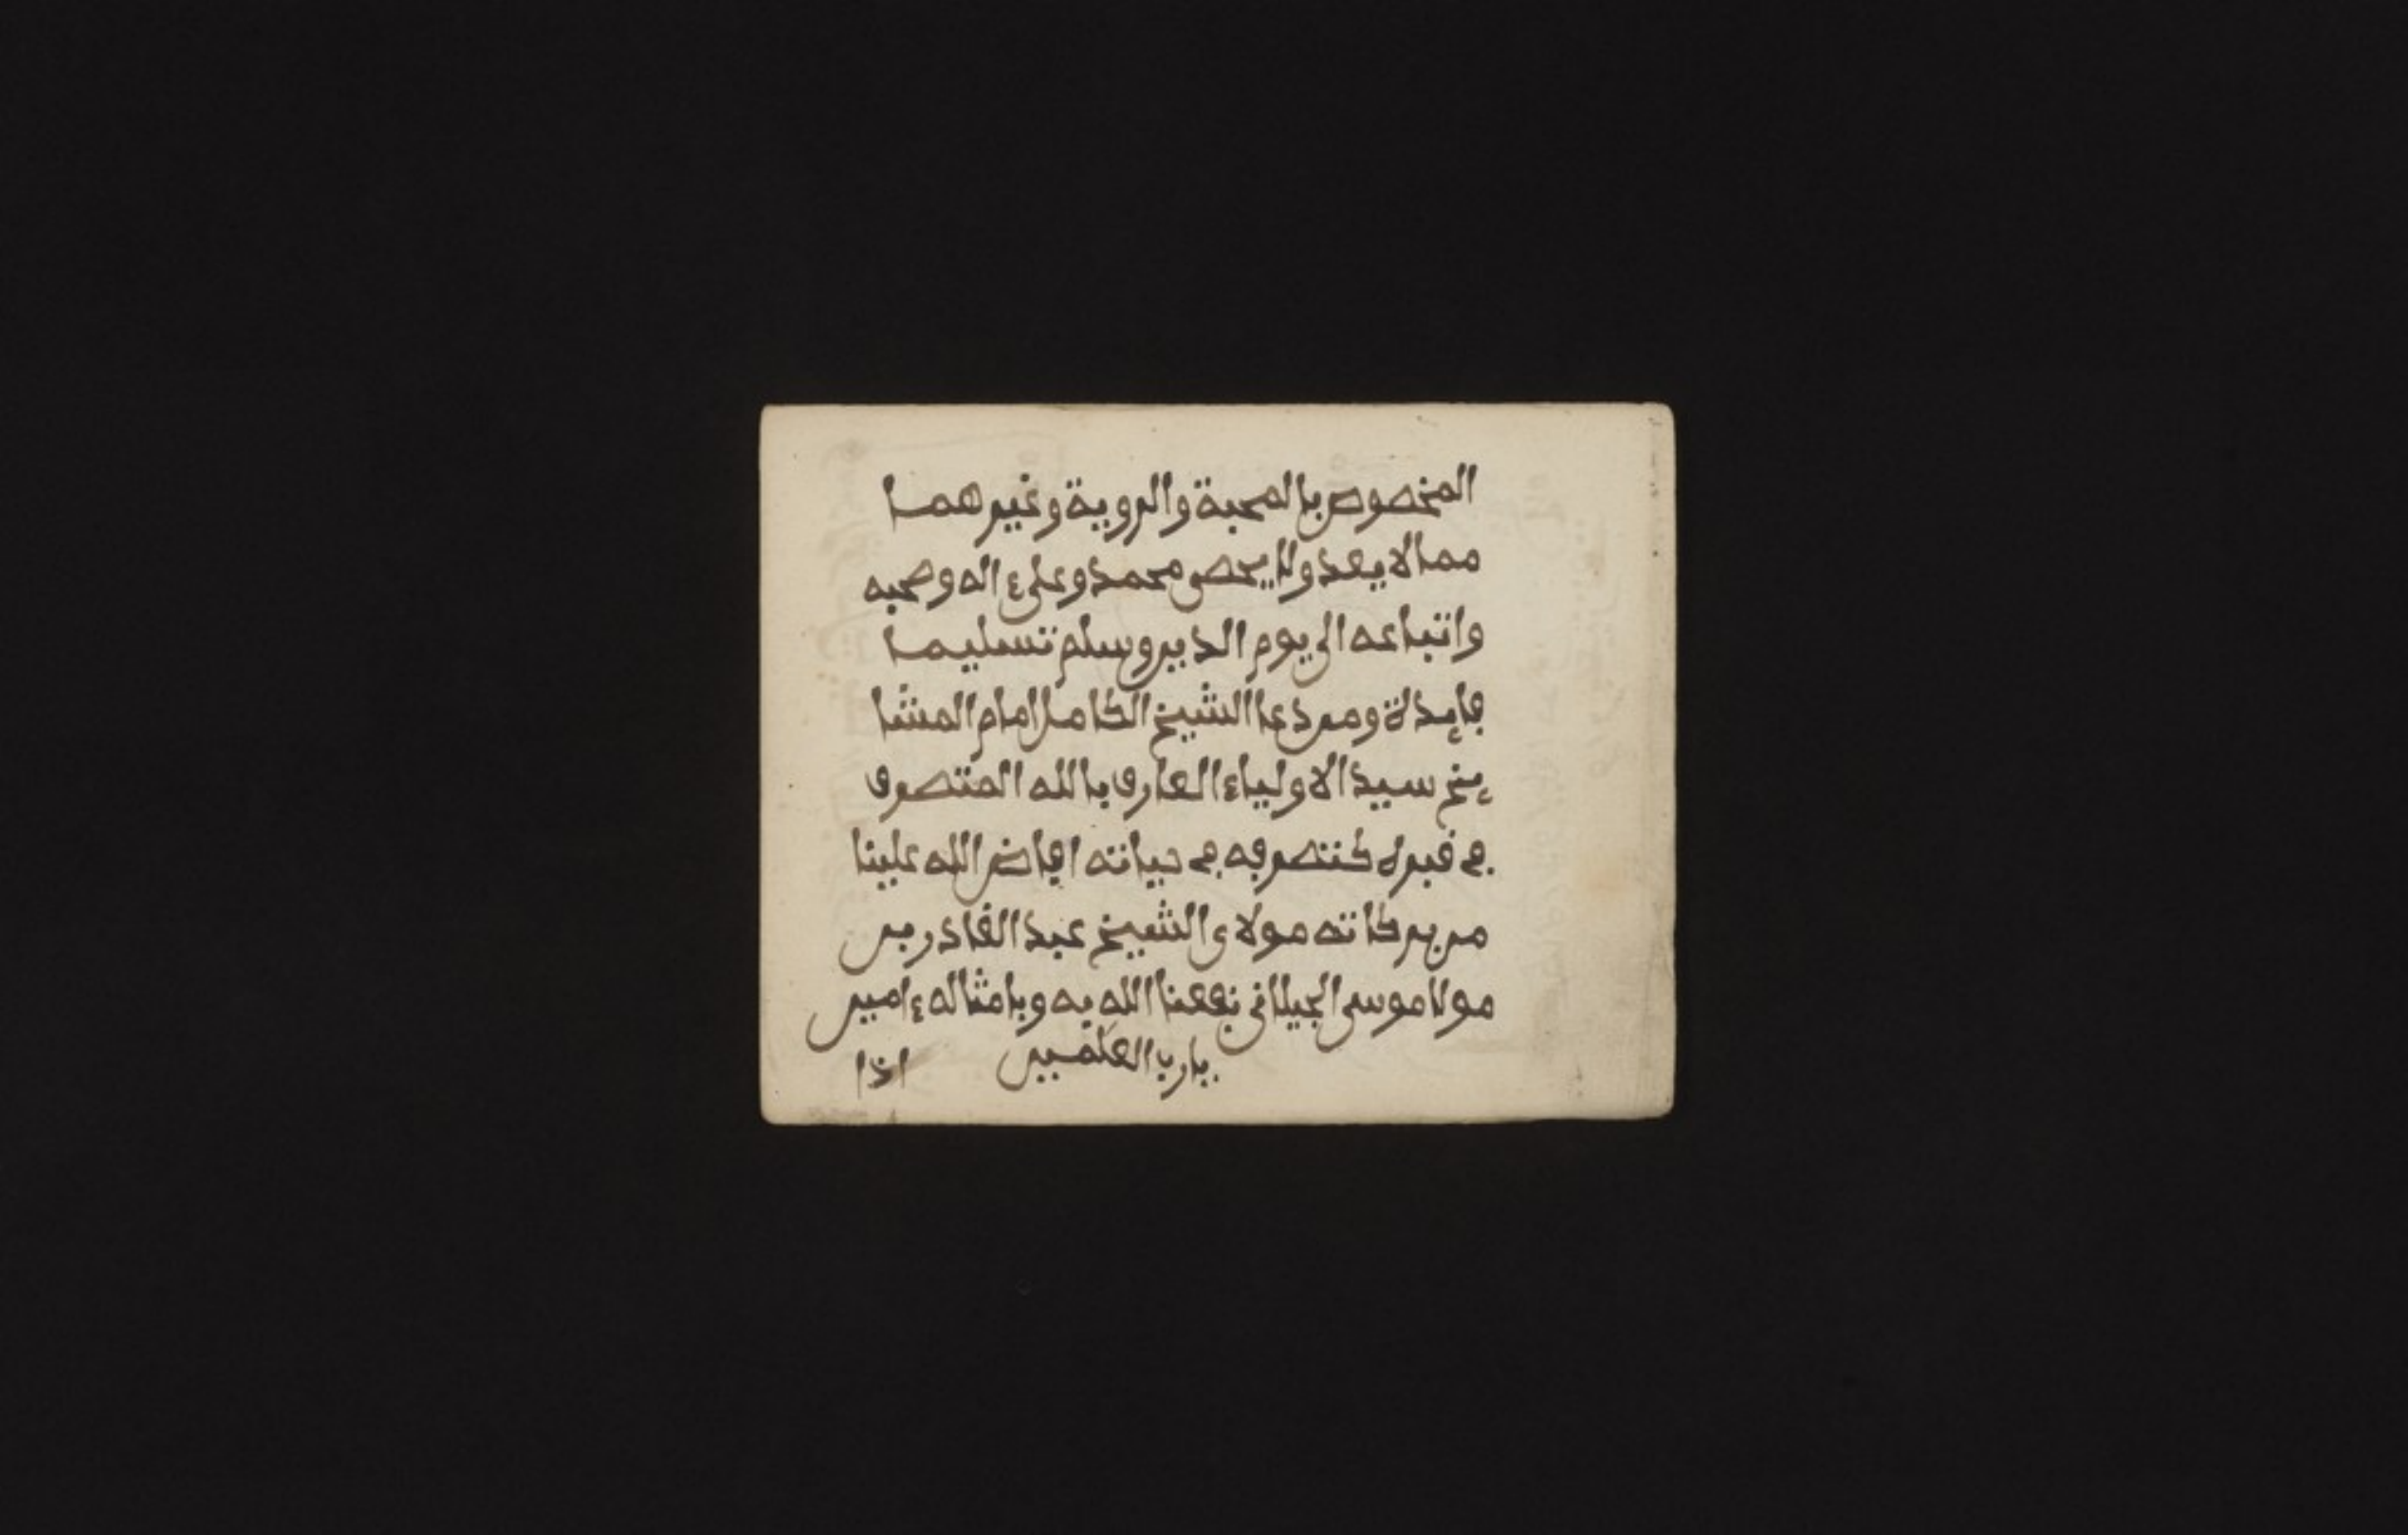 المخصوص بالمحبة والروية وغيرهما
مما لا يعد ولا يحصى محمد وعلى ءاله وصحبه
واتباعه الى يوم الدين وسلم تسليما
فايدة ومن دعا الشيخ الكامل امام المشا
يخ سيد الاولياء العارف بالله المتصرف
في قبره كتصرفه في حياته افاض الله علينا
من بركاته مولاي الشيخ عبد القادر بن
مولا موسى الجيلاني نفعنا الله به وبامثاله ءامين
يارب العلمين اذا